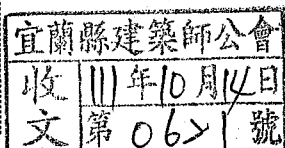 宜蘭縣建築師公會
收文
111年10月14日
第0621號